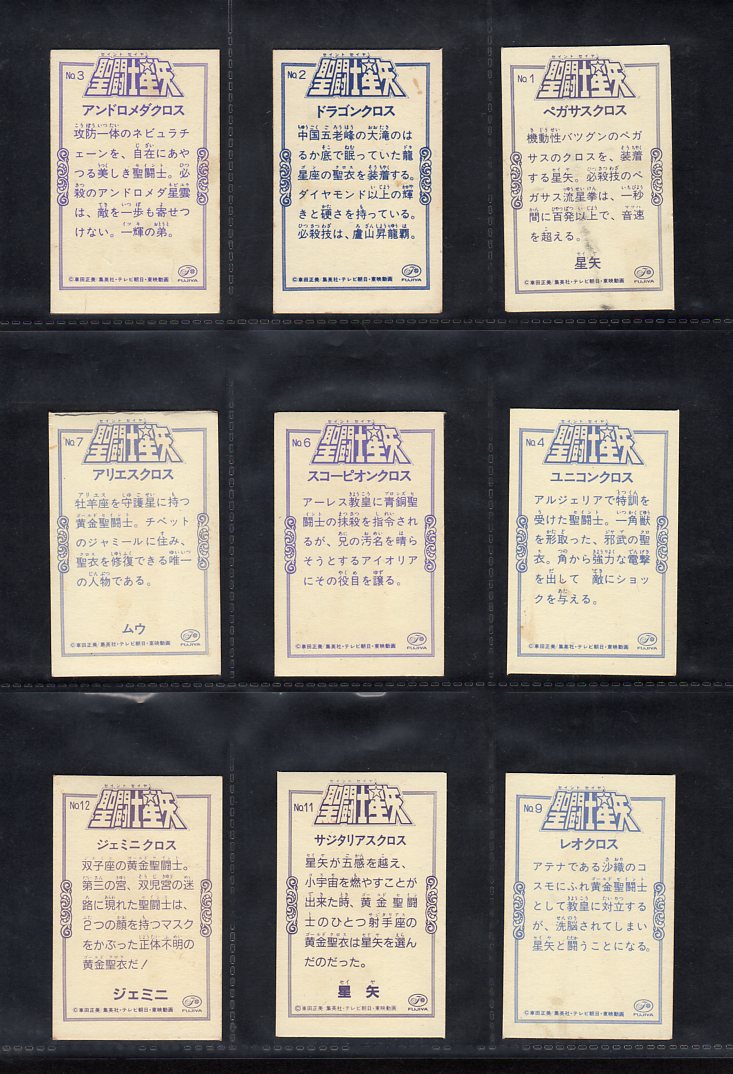 セイント セイヤ
No.3
聖闘士星矢
アンドロメダクロス
攻防一体のネビュラチ
ェーンを、自在にあや
つる美しき聖闘士。必
殺のアンドロメダ星雲
は、敵を一歩も寄せつ
けない。一輝の弟。
©車田正美/集英社・テレビ朝日・東映動画
FUJIYA
セイント セイヤ
No.2
聖闘士星矢
ドラゴンクロス
中国五老峰の大滝のは
るか底で眠っていた龍
星座の聖衣を装着する。
ダイヤモンド以上の輝
きと硬さを持っている。
必殺技は、廬山昇龍覇。
©車田正美/集英社・テレビ朝日・東映動画
FUJIYA
セイント セイヤ
No.1
聖闘士星矢
ペガサスクロス
機動性バツグンのペガ
サスのクロスを、装着
する星矢。必殺技のペ
ガサス流星拳は、一秒
間に百発以上で、音速
を超える。
星矢
©車田正美/集英社・テレビ朝日・東映動画
FUJIYA
セイント セイヤ
No.7
聖闘士星矢
アリエスクロス
牡羊座を守護星に持つ
黄金聖闘士。チベット
のジャミールに住み、
聖衣を修復できる唯一
の人物である。
ムウ
©車田正美/集英社・テレビ朝日・東映動画
FUJIYA
セイント セイヤ
No.6
聖闘士星矢
スコーピオンクロス
アーレス教皇に青銅聖
闘士の抹殺を指令され
るが、兄の汚名を晴ら
そうとするアイオリア
にその役目を譲る。
©車田正美/集英社・テレビ朝日・東映動画
FUJIYA
セイント セイヤ
No.4
聖闘士星矢
ユニコンクロス
アルジェリアで特訓を
受けた聖闘士。一角獣
を形取った、邪武の聖
衣。角から強力な電撃
を出して 敵にショッ
クを与える。
©車田正美/集英社・テレビ朝日・東映動画
FUJIYA
セイント セイヤ
No.12
聖闘士星矢
ジェミニクロス
双子座の黄金聖闘士。
第三の宮、双児宮の迷
路に現れた聖闘士は、
2つの顔を持つマスク
をかぶった正体不明の
黄金聖衣だ!
ジェミニ
©車田正美/集英社・テレビ朝日・東映動画
FUJIYA
セイント セイヤ
No.11
聖闘士星矢
サジタリアスクロス
星矢が五感を越え、
小宇宙を燃やすことが
出来た時、黄金聖闘
士のひとつ射手座の
黄金聖衣は星矢を選ん
だのだった。
星矢
©車田正美/集英社・テレビ朝日・東映動画
FUJIYA
セイント セイヤ
No.9
聖闘士星矢
レオクロス
アテナである沙織のコ
スモにふれ黄金聖闘士
として教皇に対立する
が、洗脳されてしまい
星矢と闘うことになる。
©車田正美/集英社・テレビ朝日・東映動画
FUJIYA